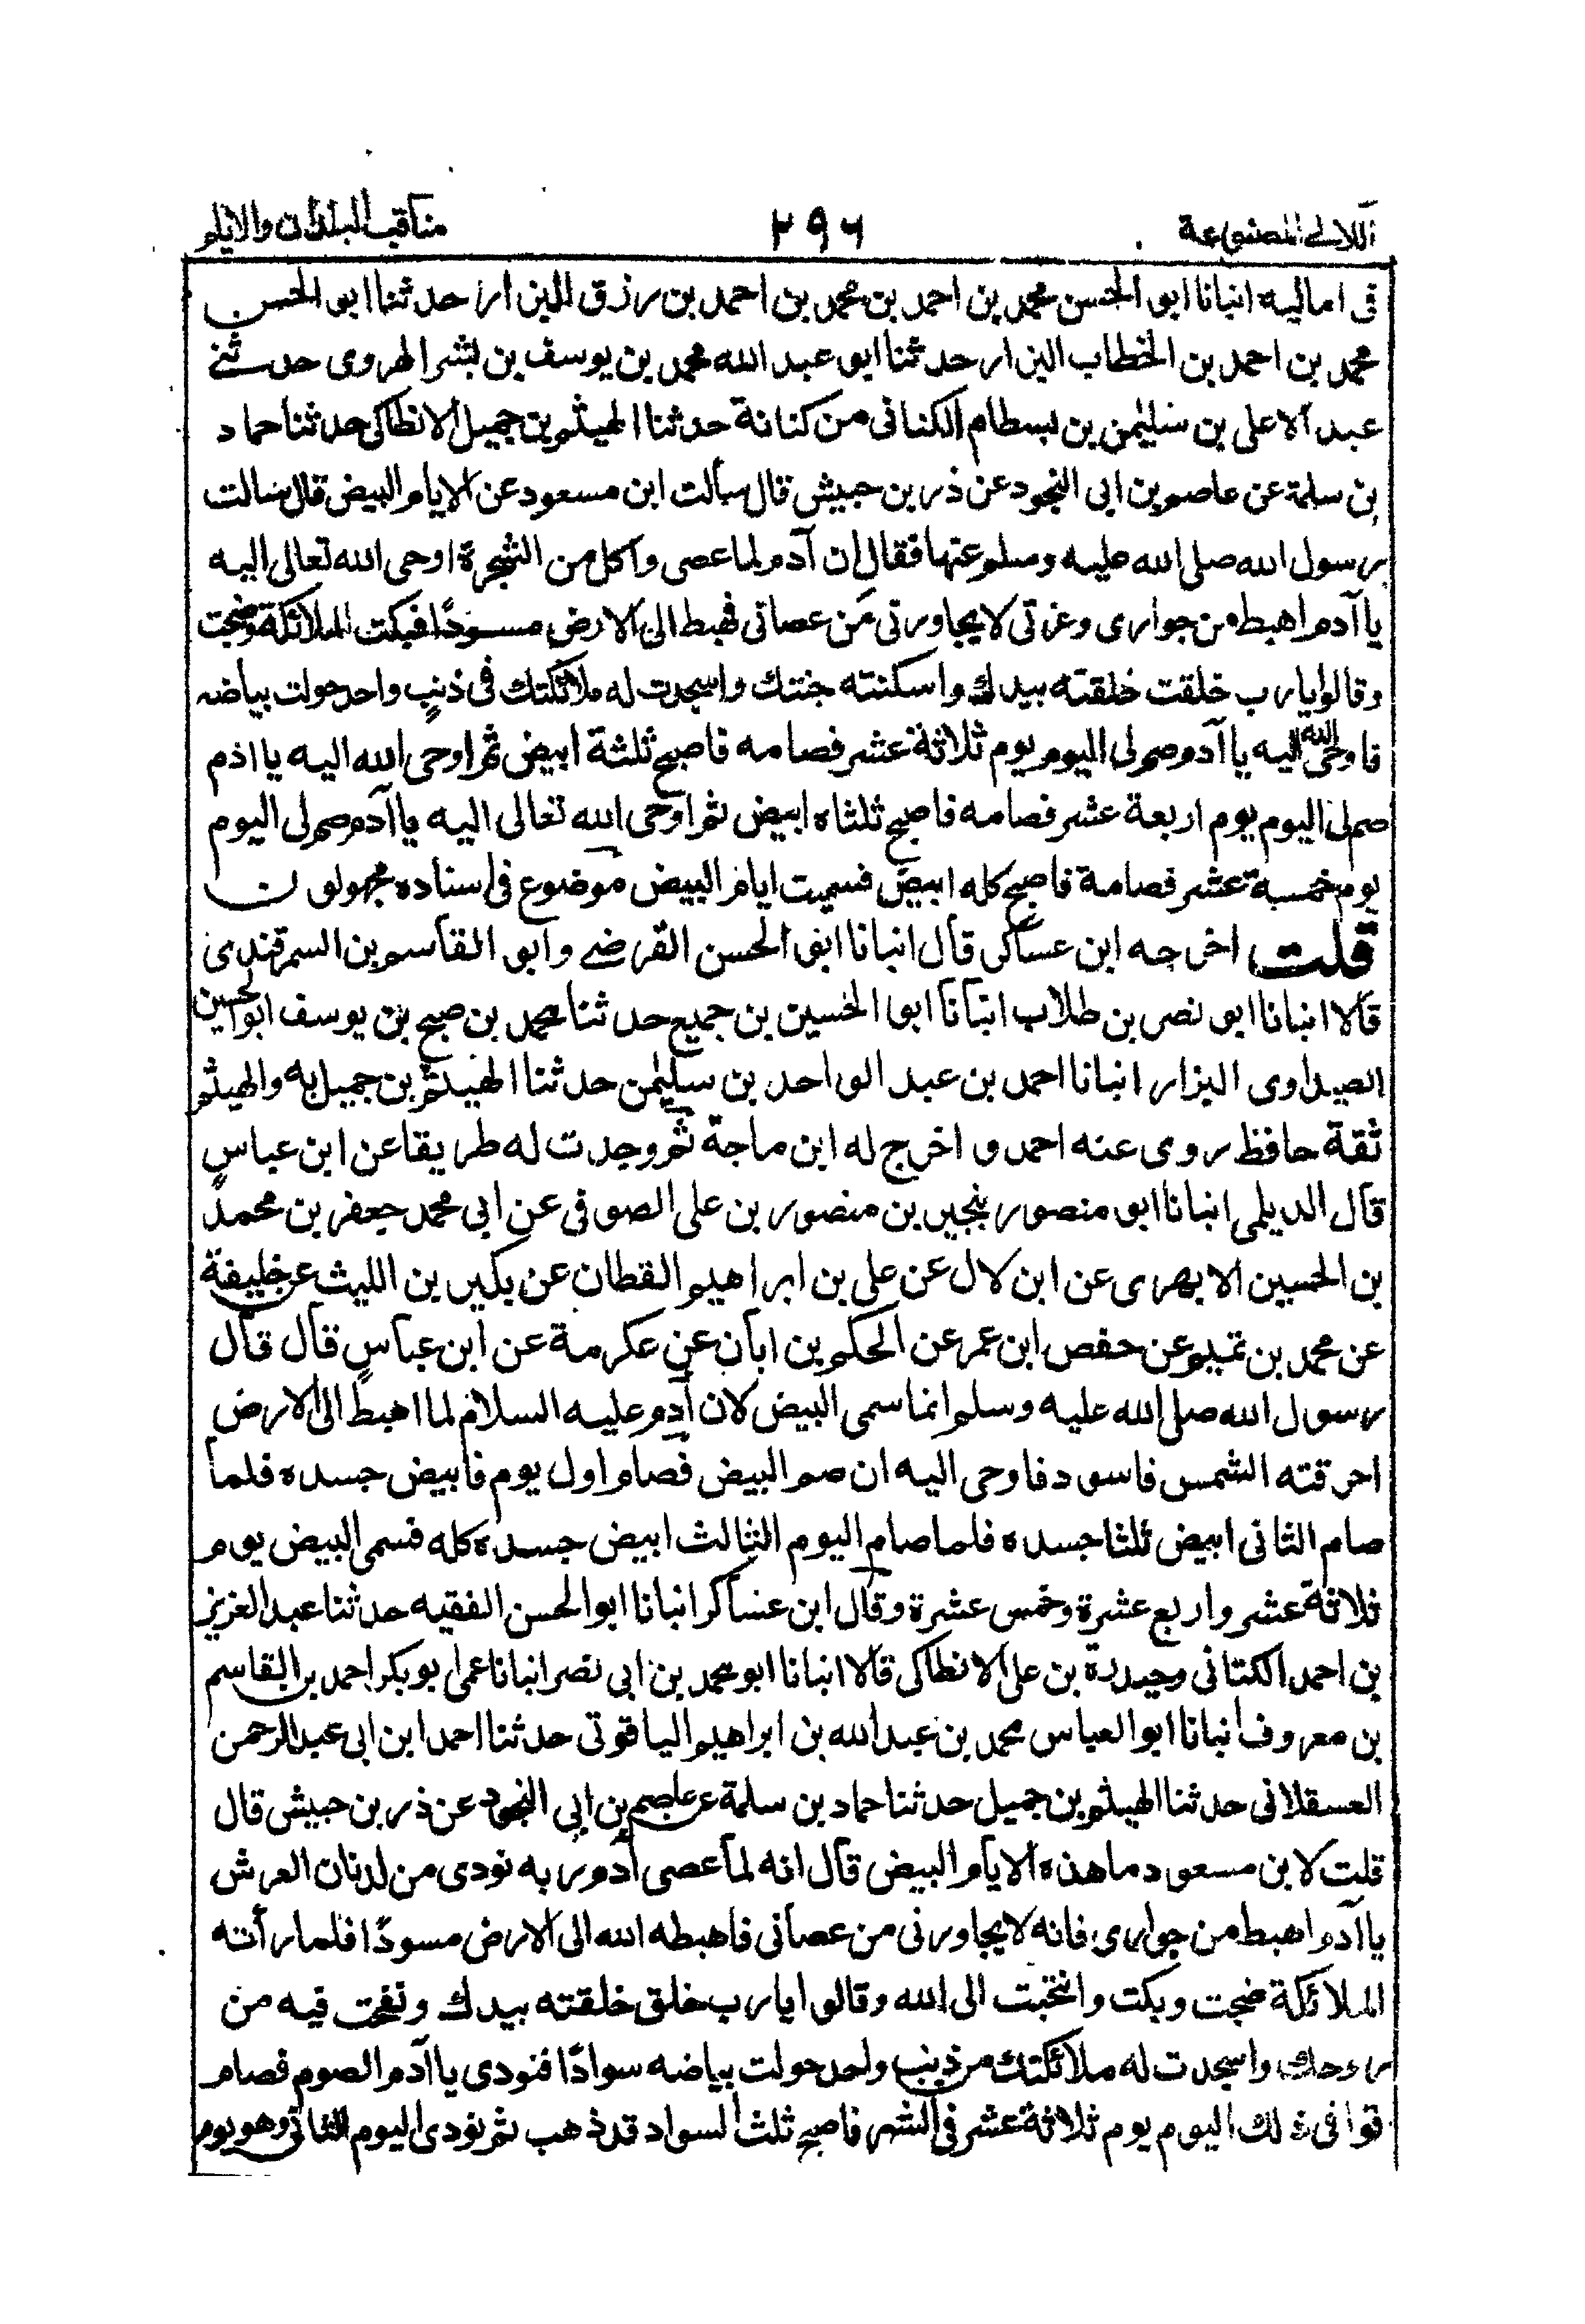 اللآلى المصنوعة ٢٩٦ مناقب البلدان والايام
فى اماليه انبانا ابو الحسن محمد بن احمد بن محمد بن احمد بن رزق البزار حدثنا ابو الحسن
محمد بن احمد بن الخطاب البزار حدثنا ابو عبد الله محمد بن يوسف بن بشر الهروى حدثنى
عبد الاعلى بن سليمن بن بسطام الكنانى من كنانة حدثنا الهيثم بن جميل الانطاكى حدثنا حماد
بن سلمة عن عاصم بن ابى النجود عن ذر بن حبيش قال سألت ابن مسعود عن الايام البيض قال سالت
رسول الله صلى الله عليه وسلم عنها فقال ان آدم لما عصى واكل من الشجرة اوحى الله تعالى اليه
يا آدم اهبط من جوارى وعزتى لا يجاورنى من عصانى فهبط الى الارض مسودًا فبكت الملائكة وضجت
وقالوا يا رب خلقت خلقته بيدك واسكنته جنتك واسجدت له ملائكتك فى ذنبٍ واحد حولت بياضه
فاوحى الله اليه يا آدم صم لى اليوم يوم ثلاثة عشر فصامه فاصبح ثلثة ابيض ثم اوحى الله اليه يا ادم
صم لى اليوم يوم اربعة عشر فصامه فاصبح ثلثاه ابيض ثم اوحى الله تعالى اليه يا آدم صم لى اليوم
يوم خمسة عشر فصامة فاصبح كله ابيض فسميت ايام البيض موضوع فى اسناده مجهولون
قلت اخرجه ابن عساكر قال انبانا ابو الحسن القرضے وابو القاسم بن السمرقندى
قالا انبانا ابو نصر بن طلاب انبانا ابو الحسين بن جميع حدثنا محمد بن صبح بن يوسف ابو الحسين
الصيداوى البزار انبانا احمد بن عبد الواحد بن سليمن حدثنا الهيثم بن جميل به والهيثم
ثقة حافظ روى عنه احمد و اخرج له ابن ماجة ثم وجدت له طريقا عن ابن عباسٍ
قال الديلمى انبانا ابو منصور بنجير بن منصور بن على الصوفى عن ابى محمد جعفر بن محمد
بن الحسين الابهرى عن ابن لال عن على بن ابراهيم القطان عن بكير بن الليث عن خليفة
عن محمد بن تميم عن حفص ابن عمر عن الحكم بن ابان عن عكرمة عن ابن عباسٍ قال قال
رسول الله صلى الله عليه وسلم انما سمى البيض لان آدم عليه السلام لما اهبط الى الارض
احرقته الشمس فاسود فاوحى اليه ان صم البيض فصام اول يوم فابيض جسده فلما
صام الثانى ابيض ثلثا جسده فلما صام اليوم الثالث ابيض جسده كله فسمى البيض يوم
ثلاثة عشر واربع عشرة وخمس عشرة وقال ابن عساكر انبانا ابو الحسن الفقيه حدثنا عبد العزيز
بن احمد الكتانى وحيدرة بن على الانطاكى قالا انبانا ابو محمد بن ابى نصر انبانا عمى ابو بكر احمد بن القاسم
بن معروف انبانا ابو العباس محمد بن عبد الله بن ابراهيم الياقوتى حدثنا احمد ابن ابى عبد الرحمن
العسقلانى حدثنا الهيثم بن جميل حدثنا حماد بن سلمة عن عاصم بن ابى النجود عن ذر بن حبيش قال
قلت لابن مسعود ما هذه الايام البيض قال انه لما عصى آدم ربه نودى من لدنان العرش
يا آدم اهبط من جوارى فانه لا يجاورنى من عصانى فاهبطه الله الى الارض مسودًا فلما رأته
الملائكة ضجت وبكت وانتحبت الى الله وقالوا يا رب خلق خلقته بيدك ونفخت فيه من
روحك واسجدت له ملائكتك من ذنب واحد حولت بياضه سوادًا فنودى يا آدم الصوم فصام
فوافى ذلك اليوم يوم ثلاثة عشر فى الشهر فاصبح ثلث السواد قد ذهب ثم نودى اليوم الثانى وهو يوم